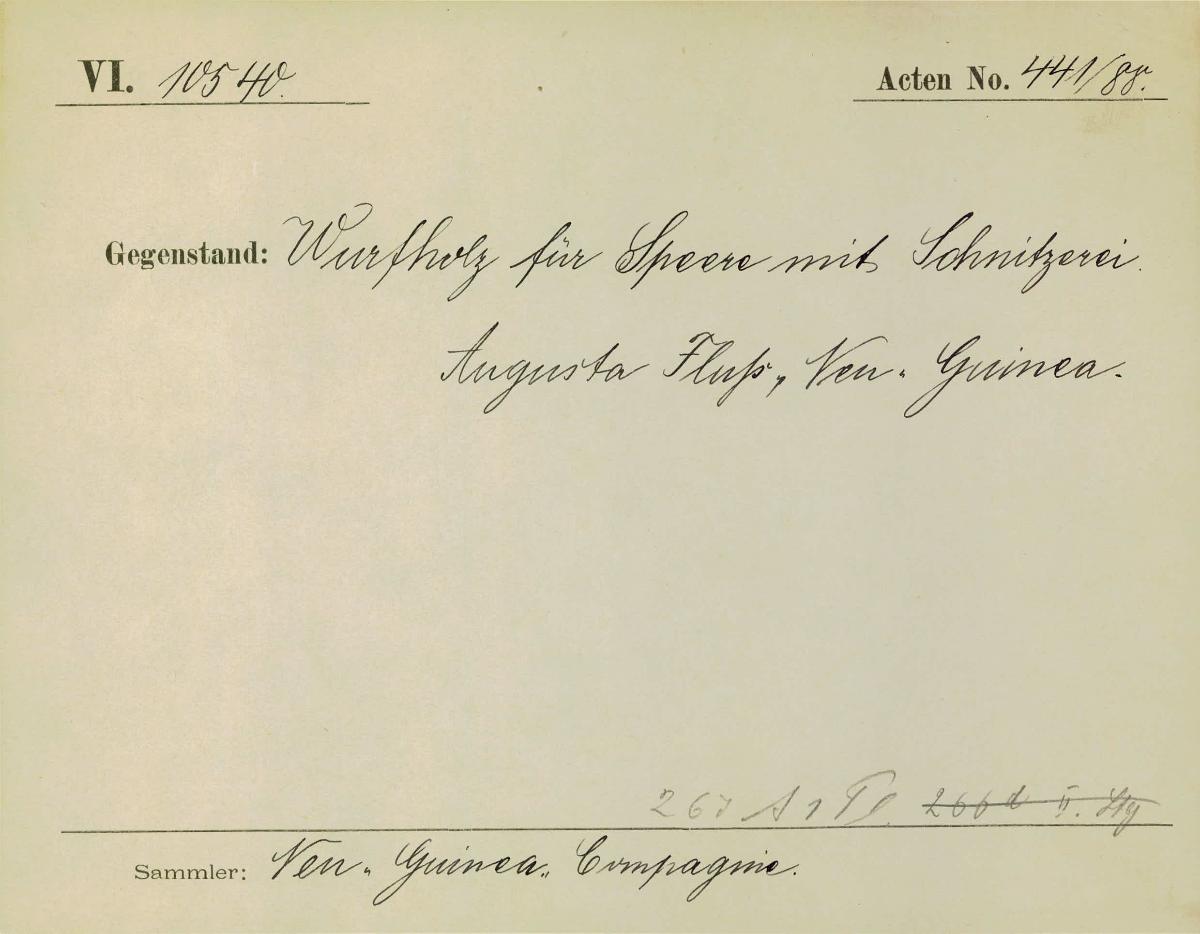 VI. 10540.
Acten No. 441/88.
Gegenstand: Wurfholz für Speere mit Schnitzerei.
Augusta Fluß, Neu-Guinea.
266d II. Stg
Sammler: Neu-Guinea-Compagnie.